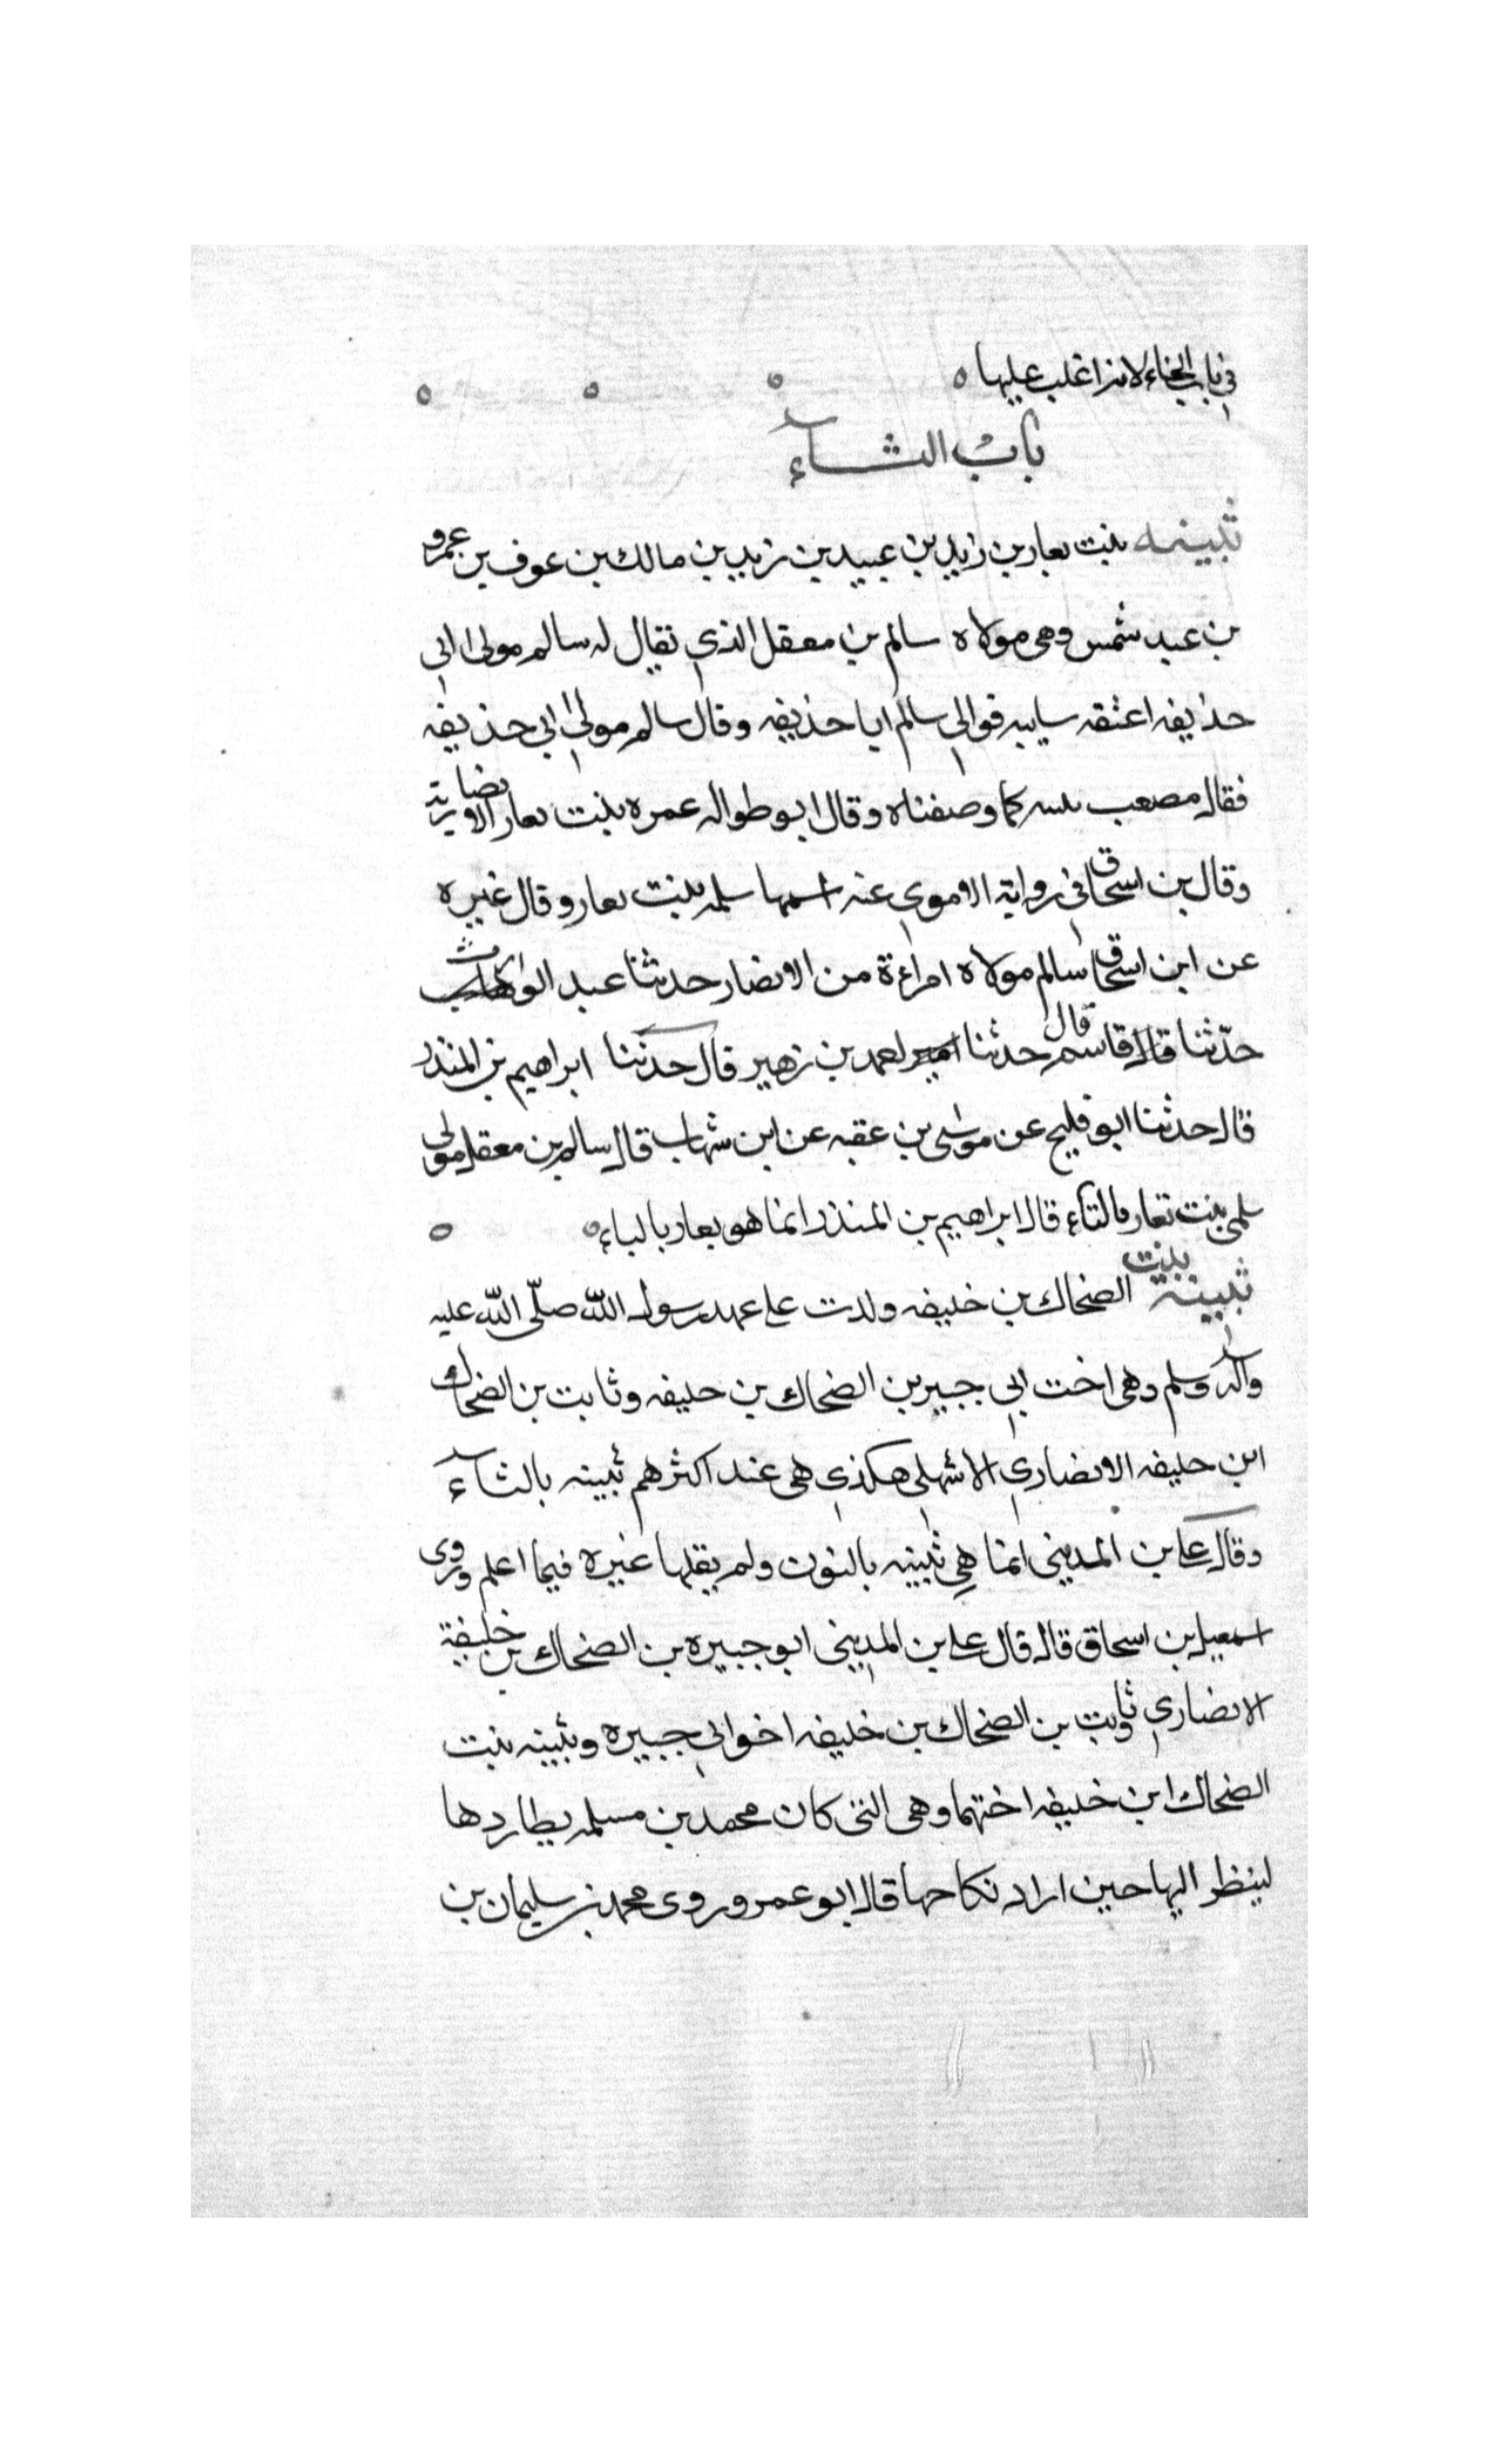 في باب الخاء لانه اغلب عليها ه
باب الثاء
ثبينه بنت يعار بن زيد بن عبيد بن زيد بن مالك بن عوف بن عمرو
بن عبد شمس وهى مولاه سالم بن معقل الذي يقال له سالم مولى ابي
حذيفه اعتقه سايبه فوالي سالم ابا حذيفه وقال سالم مولى ابي حذيفه
فقال مصعب كما وصفناه وقال ابو طواله عمره بنت يعار الانضاريه
وقال بن اسحاق في رواية الاموي عنه اسمها سلمه بنت يعار وقال غيره
عن ابن اسحاق سالم مولاه امراءة من الانصار حدثنا عبد الوارث
حدّثنا قال قاسم قال حدثنا احمد بن زهير قال حدثنا ابراهيم بن المنذر
قال حدثنا ابو فليح عن موسى بن عقبه عن ابن شهاب قال سالم بن معقل مولى
سلمى بنت تعار بالتاء قال ابراهيم بن المنذر انما هو يعار بالياء ه
ثبينة بنت الضحاك بن خليفه ولدت على عهد رسول الله صلّى الله عليه
وآله وسلم وهى اخت ابي جبير بن الضحاك بن خليفه وثابت بن الضحاك
ابن خليفه الانصاري الاشهلى هكذي هى عند اكثرهم ثبينه بالثاء
وقال على بن المديني انما هي نبينه بالنون ولم يقلها غيره فيما اعلم وروى
اسمعيل بن اسحاق قال قال على بن المديني ابو جبيره بن الضحاك بن خليفة
الانصاري وثابت بن الضحاك بن خليفه اخو ابي جبيره وثبينه بنت
الضحاك ابن خليفه اختهما وهى التى كان محمد بن مسلمه يطاردها
لينظر اليها حين اراد نكاحها قال ابو عمر وروى محمد بن سليمان بن